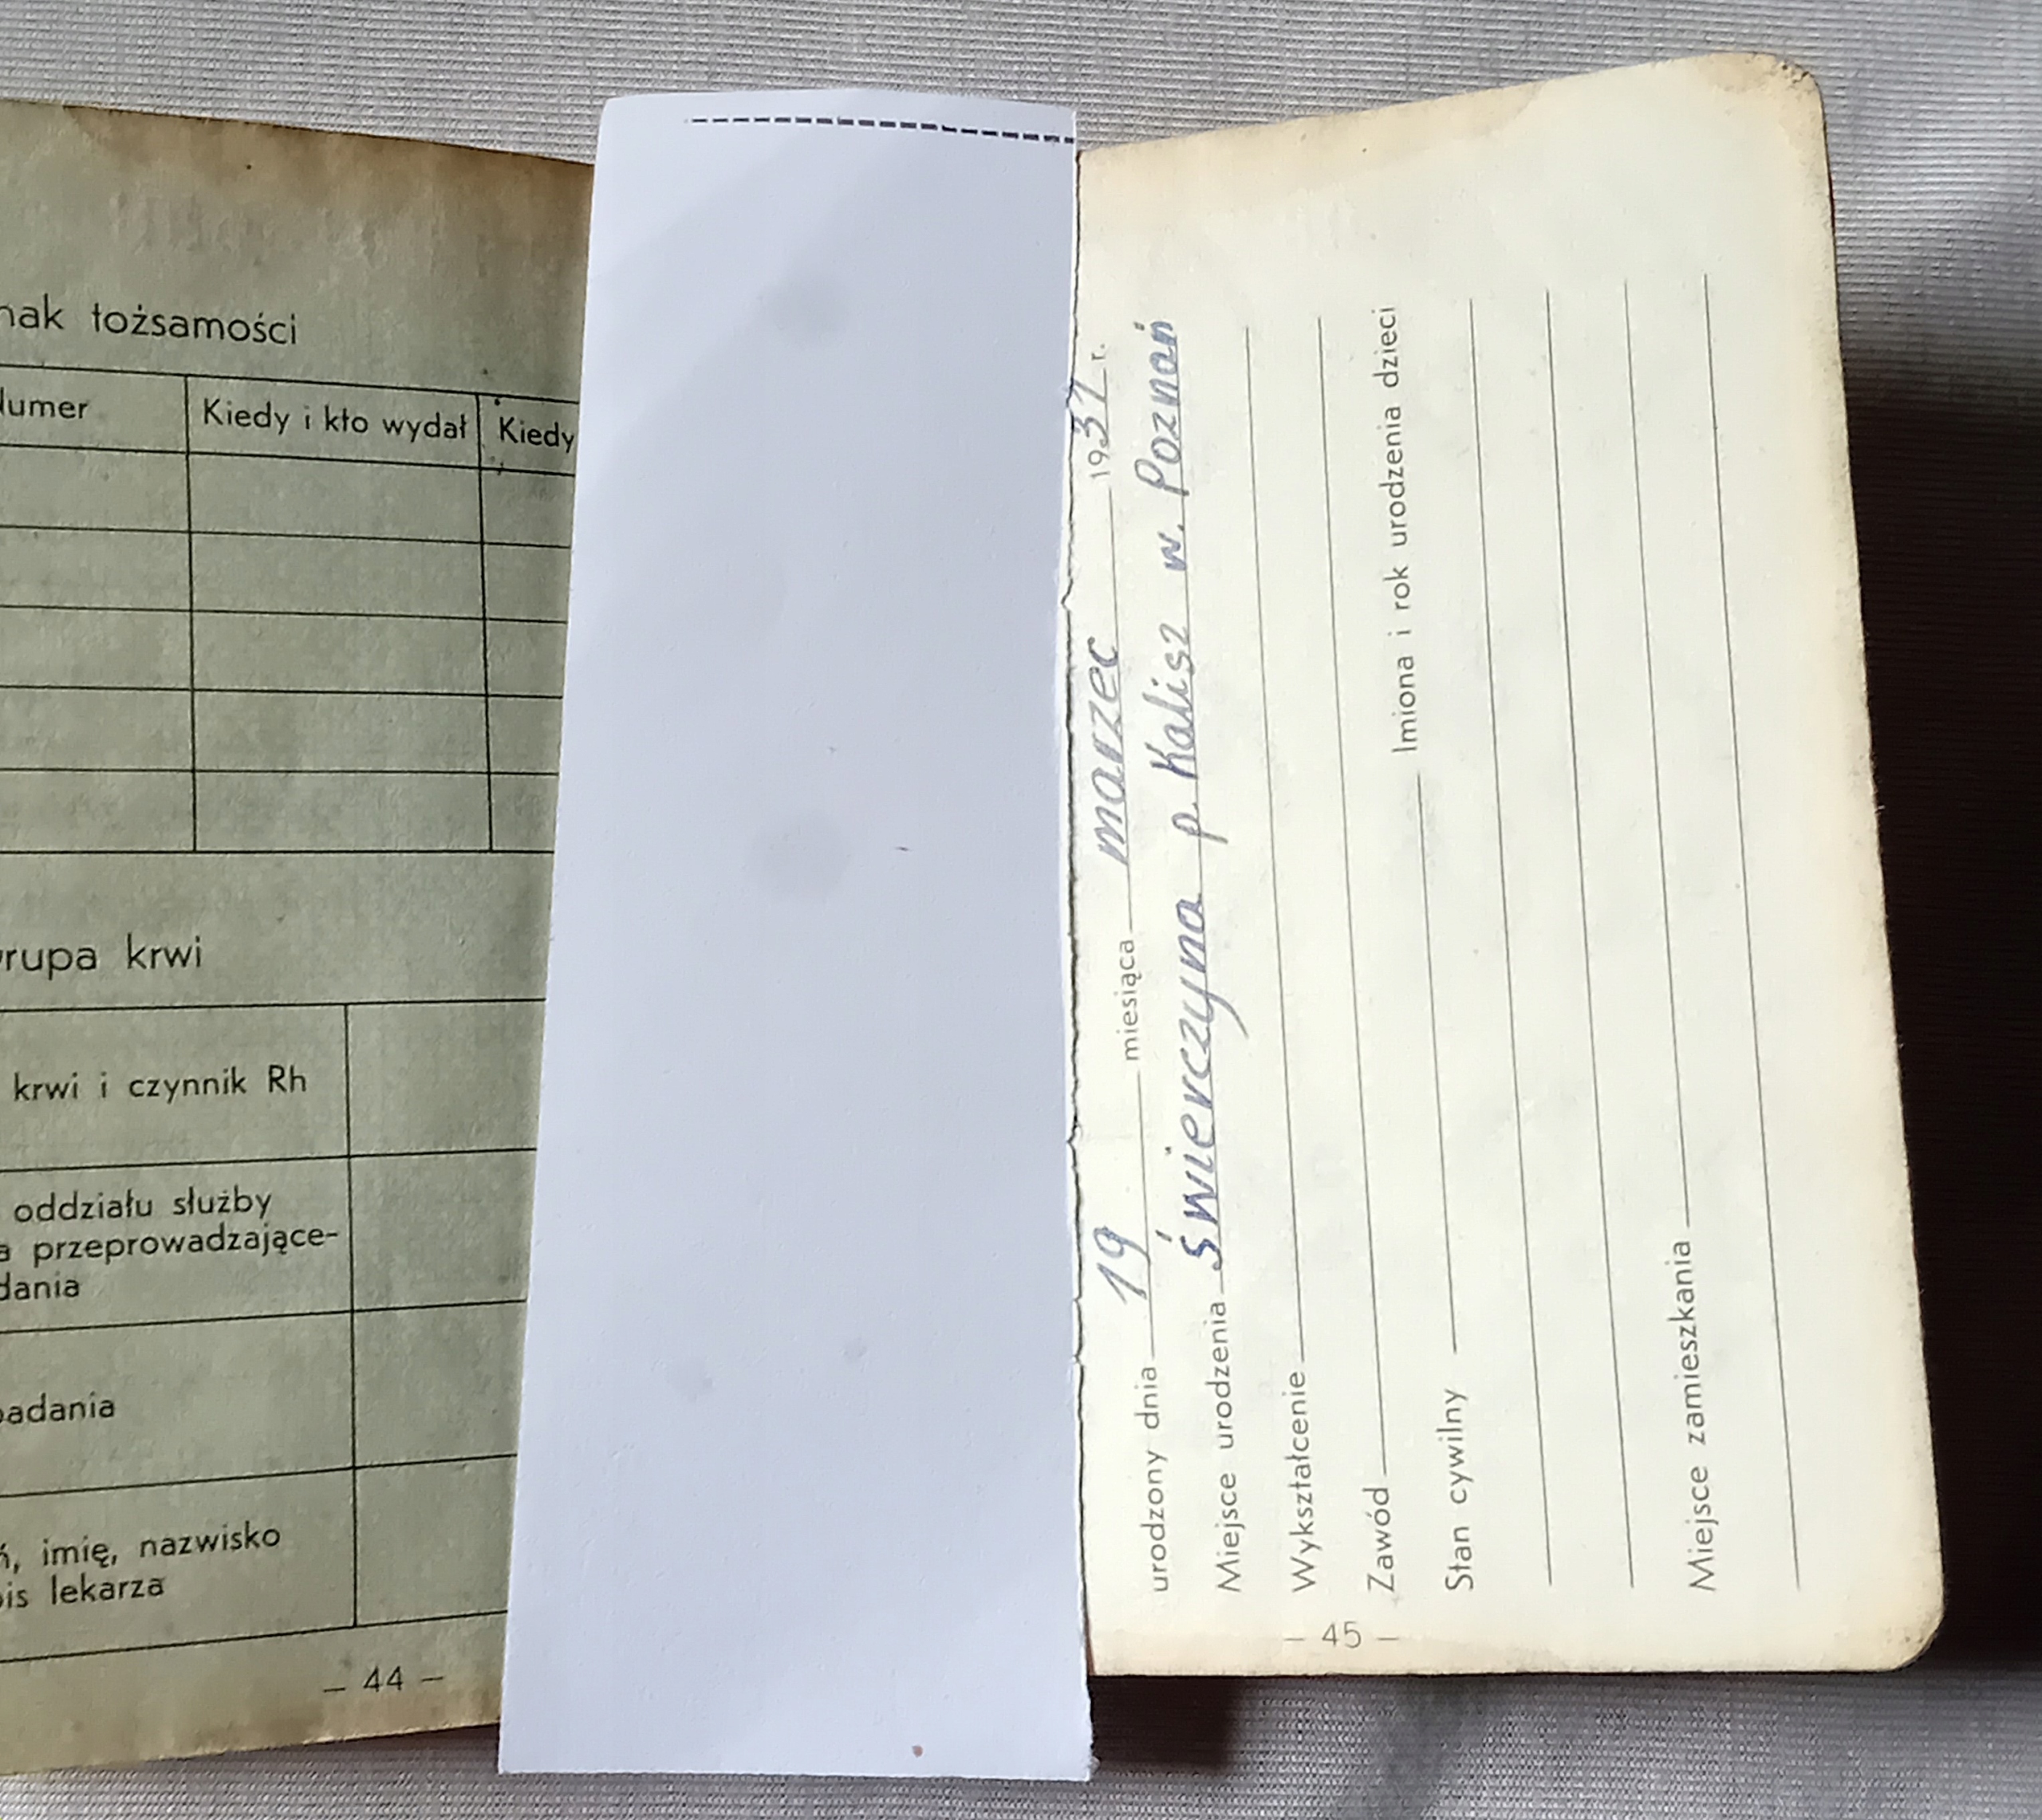 nak tożsamości
Numer Kiedy i kto wydał Kiedy
rupa krwi
krwi i czynnik Rh
oddziału służby
a przeprowadzające-
dania
badania
ń, imię, nazwisko
pis lekarza
– 44 –
urodzony dnia 19 miesiąca marzec 1937 r.
Miejsce urodzenia Świerczyna p. Kalisz w. Poznań
Wykształcenie
Zawód
Stan cywilny Imiona i rok urodzenia dzieci
Miejsce zamieszkania
– 45 –